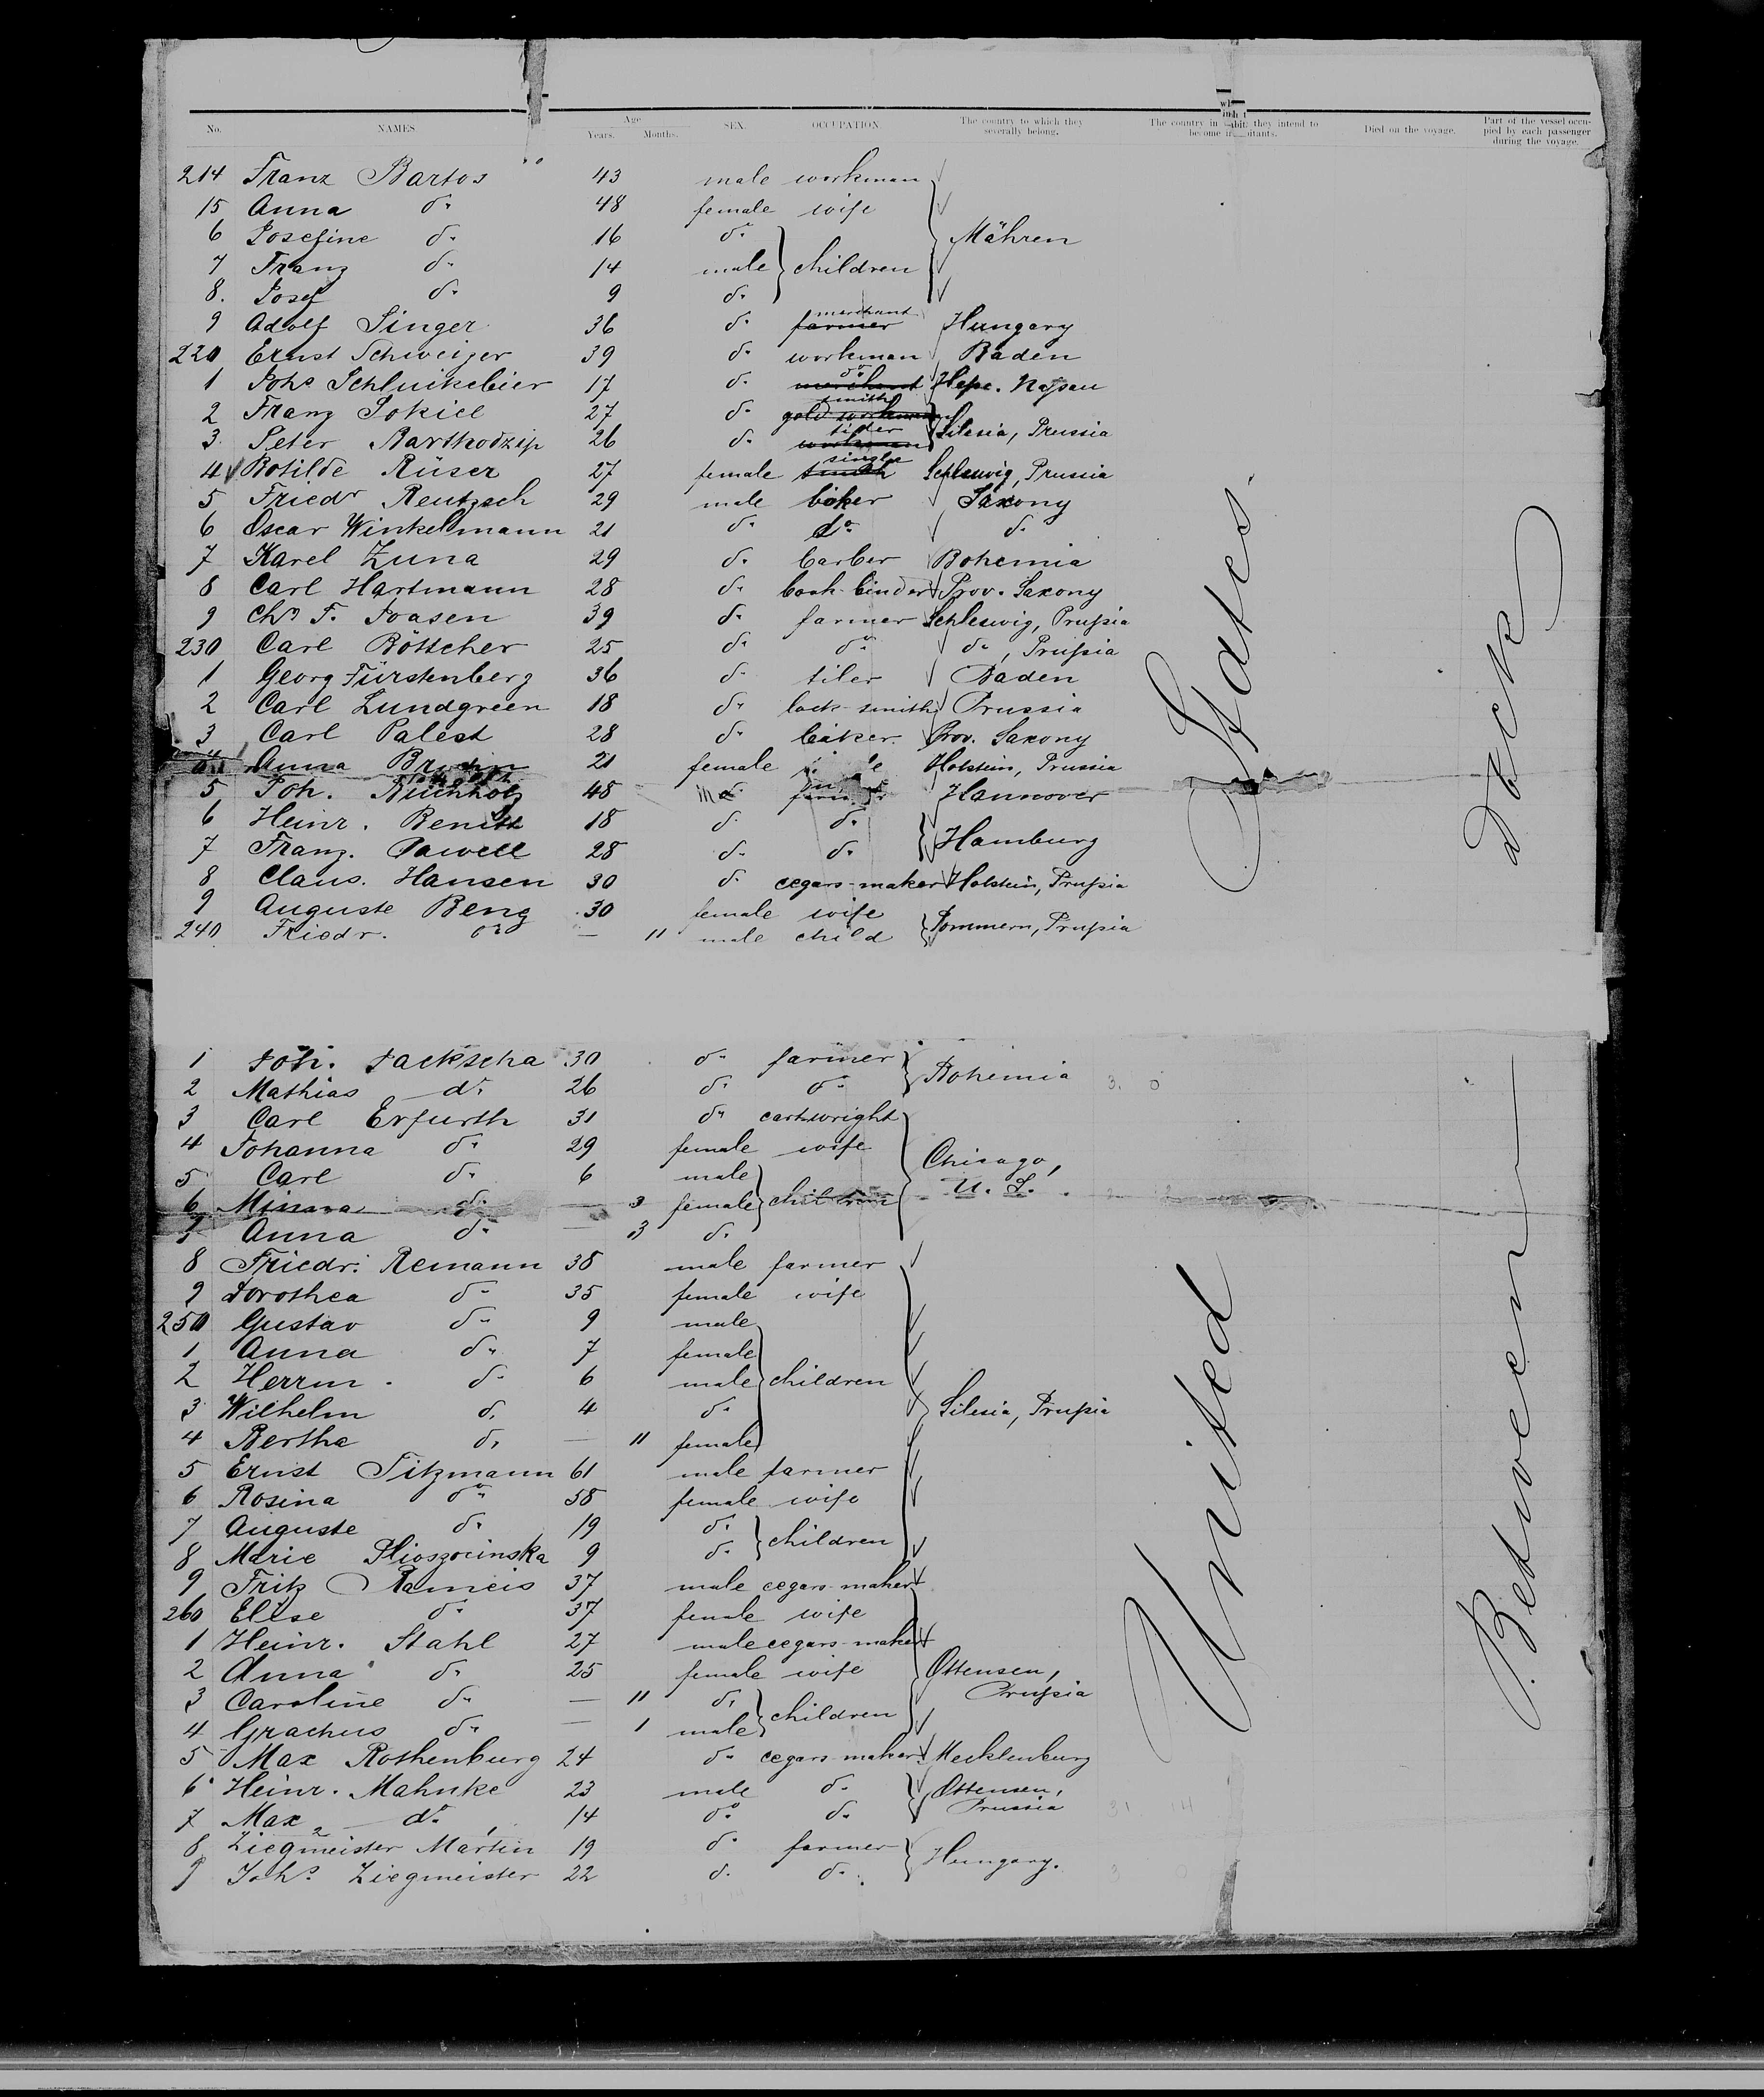 No. NAMES. Age Years. Months. SEX. OCCUPATION. The country to which they severally belong. The country in which they intend to become inhabitants. Died on the voyage. Part of the vessel occupied by each passenger during the voyage.
214 Franz Bartos 43 male workman
15 Anna do. 48 female wife
6 Josefine do. 16 do. Mähren
7 Franz do. 14 male children
8. Josef do. 9 do.
9 Adolf Singer 36 do. farmer merchant Hungary
220 Ernst Schweizer 39 do. workman Baden
1 Johs Schluikebier 17 do. merchant do. Hesse. Nassau
2 Franz Sokill 27 do. gold workman smith
3 Peter Barthodzip 26 do. workman Silesia, Prussia
4 Botilde Rüser 27 female single Schleswig, Prussia
5 Friedr Rentzsch 29 male baker Saxony
6 Oscar Winkelmann 21 do. do. do.
7 Karel Zuna 29 do. barber Bohemia
8 Carl Hartmann 28 do. book-binder Prov. Saxony
9 Chr. F. Joasen 39 do. farmer Schleswig, Prussia
230 Carl Böttcher 25 do. do. do., Prussia
1 Georg Fürstenberg 36 do. tiler Baden
2 Carl Lundgreen 18 do. lock-smith Prussia
3 Carl Palest 28 do. baker Prov. Saxony
Anna 21 female Holstein, Prussia
5 Joh. 48 Hannover
6 Heinr. Benitt 18 do. do. Hamburg
7 Franz. Pawell 28 do. do.
8 Claus. Hansen 30 do. cegars-maker Holstein, Prussia
9 Auguste Beng 30 female wife
240 Friedr. do. — 11 male child Pommern, Prussia
1 Joh. Jackscha 30 do. farmer Bohemia
2 Mathias do. 26 do. do.
3 Carl Erfurth 31 do. cartwright
4 Johanna do. 29 female wife Chicago,
5 Carl do. 6 male U. S.
6 Minna do. — 3 female children
7 Anna do. — 3 do.
8 Friedr. Remann 38 male farmer
9 Dorothea do. 35 female wife
250 Gustav do. 9 male
1 Anna do. 7 female
2 Herrm. do. 6 male children
3 Wilhelm do. 4 do. Silesia, Prussia
4 Bertha do. — 11 female
5 Ernst Titzmann 61 male farmer
6 Rosina do. 58 female wife
7 Auguste do. 19 do. children
8 Marie Plioszocinska 9 do.
9 Fritz Rameis 37 male cegars-maker
260 Elise do. 37 female wife
1 Heinr. Stahl 27 male cegars-maker
2 Anna do. 25 female wife Ottensen,
3 Caroline do. — 11 do. children Prussia
4 Grachus do. — 1 male
5 Max Rothenburg 24 do. cegars-maker Mecklenburg
6 Heinr. Mahnke 23 male do. Ottensen,
7 Max do. 14 do. do. Prussia
8 Ziegmeister Martin 19 do. farmer Hungary.
9 Johs. Ziegmeister 22 do. do.
United States
Between Deck